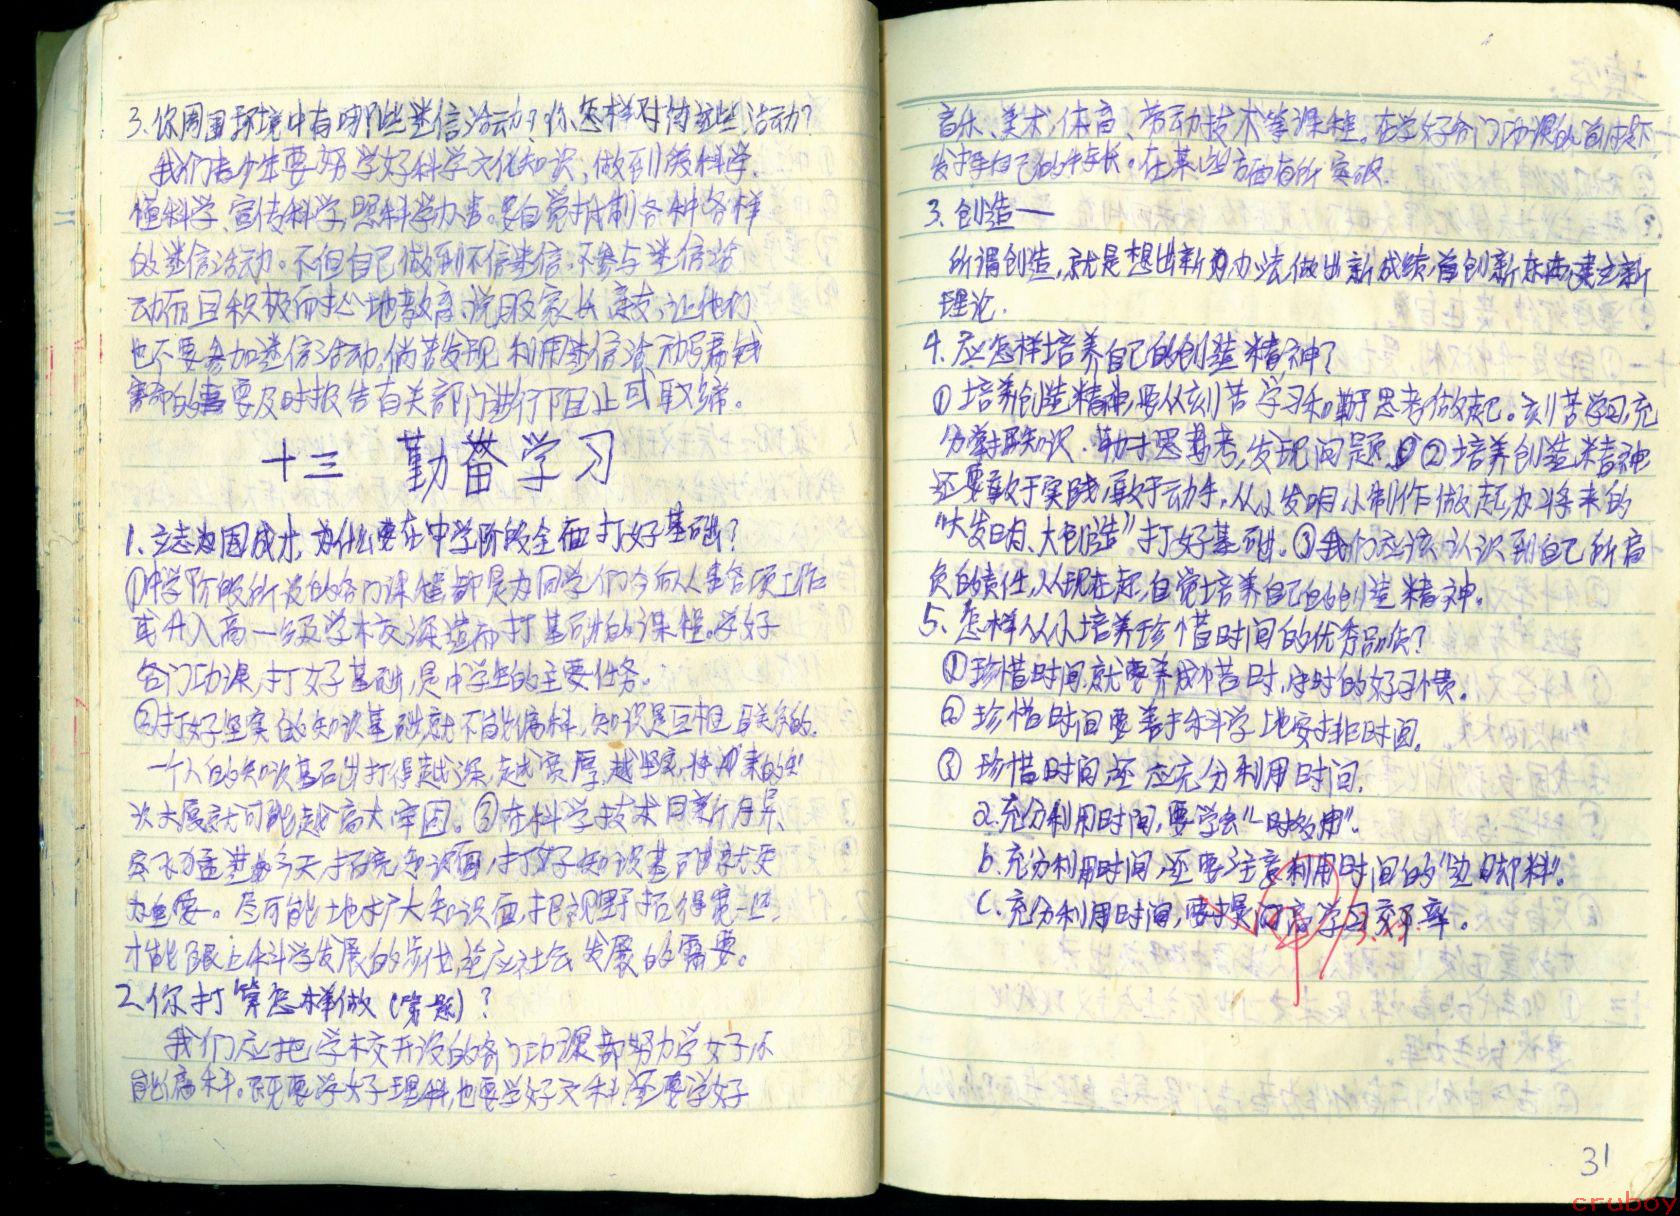 3、你周围环境中有哪些迷信活动？你怎样对待这些活动？
我们青少年要努学好科学文化知识，做到爱科学、
懂科学、宣传科学，照科学办事。要自觉抵制各种各样
的迷信活动。不但自己做到不信迷信、不参与迷信活
动而且积极而热心地教育、说服家长、亲友，让他们
也不要参加迷信活动，倘若发现利用迷信活动骗钱
害命的要及时报告有关部门进行阻止或取缔。
十三 勤奋学习
1、立志为国成才，为什么要在中学阶段全面打好基础？
①中学阶段所设的各门课程都是为同学们今后从事各项工作
或升入高一级学校深造而打基础的课程。学好
各门功课，打好基础，是中学生的主要任务。
②打好坚实的知识基础，就不能偏科，知识是互相关系的，
一个人的知识基础打得越深、越宽厚、越坚实，将来的知
识大厦就可能越高大牢固。③在科学技术日新月异、
突飞猛进的今天，拓宽知识面，打好知识基础就更
为重要。尽可能地扩大知识面，把视野拓得宽一些，
才能跟上科学发展的步伐，适应社会发展的需要。
2、你打算怎样做（第1题）？
我们应把学校开设的各门功课都努力学好，不
能偏科。既要学好理科，也要学好文科，还要学好
音乐、美术、体育、劳动技术等课程。在学好各门功课的前提下
发挥自己的特长。在某些方面有所突破。
3、创造—
所谓创造，就是想出新办法，做出新成绩，首创新东西，建立新
理论。
4、应怎样培养自己的创造精神？
①培养创造精神，要从刻苦学习和勤于思考做起。刻苦学习，充
分掌握知识，勤于思考，发现问题。②培养创造精神
还要敢于实践，敢于动手，从小发明小制作做起，为将来的
“大发明、大创造”打好基础。③我们应该认识到自己所肩
负的责任，从现在起，自觉培养自己的创造精神。
5、怎样从小培养珍惜时间的优秀品质？
①珍惜时间，就要养成惜时，守时的好习惯。
②珍惜时间要善于科学地安排时间。
③珍惜时间还应充分利用时间。
a.充分利用时间，要学会“一时多用”。
b.充分利用时间，还要注意利用时间的“边角余料”。
c.充分利用时间，要提高学习效率。
31
cruboy